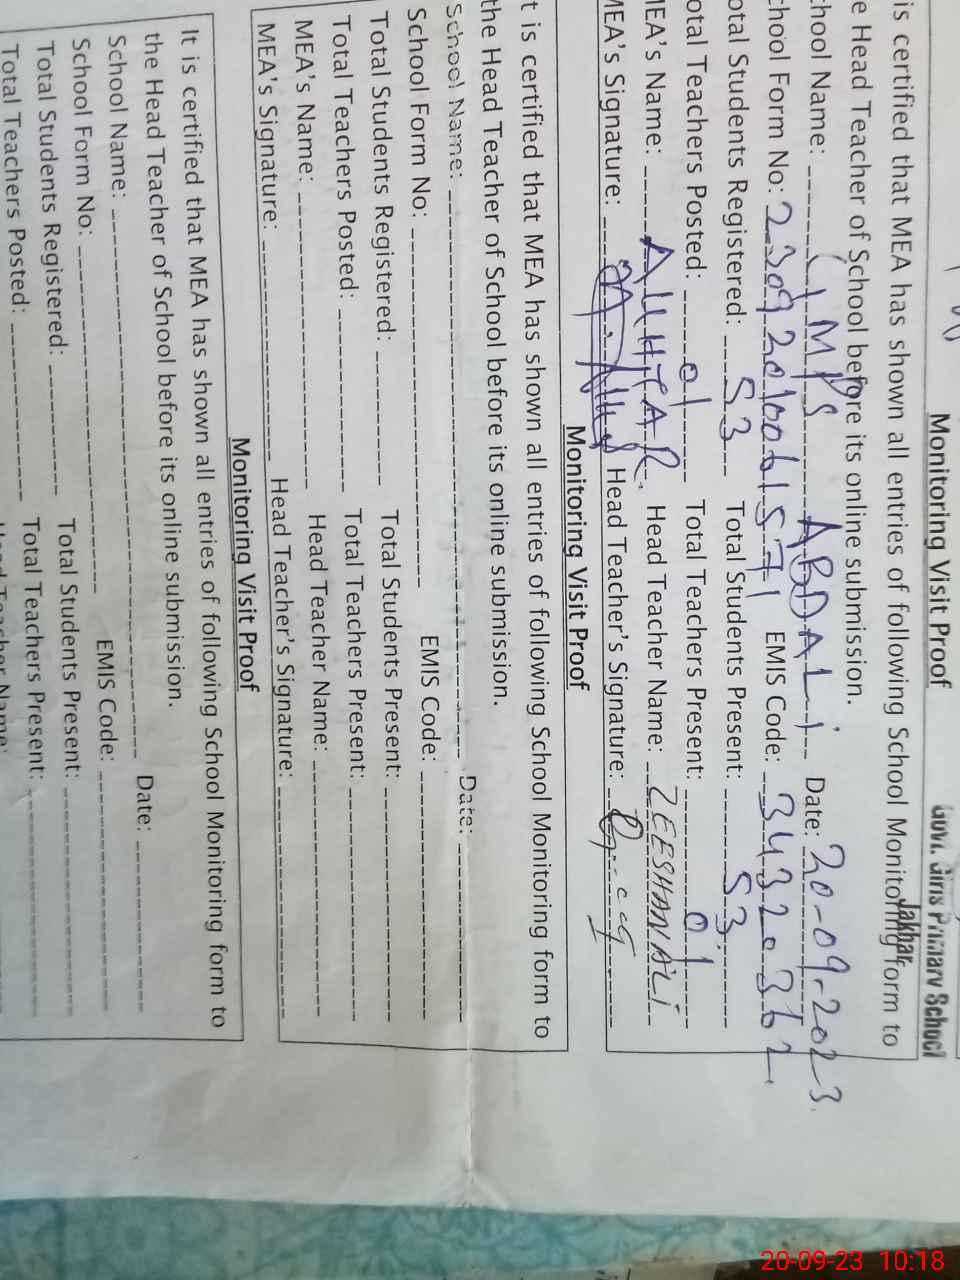 Govt. Girls Primary School
Jakhar
Monitoring Visit Proof
is certified that MEA has shown all entries of following School Monitoring form to
e Head Teacher of School before its online submission.
chool Name: GMPS ABDALi Date: 20-09-2023
chool Form No: EMIS Code:
otal Students Registered: 53 Total Students Present: 53
otal Teachers Posted: 01 Total Teachers Present: 01
MEA's Name: Head Teacher Name: ZEESHAN ALi
MEA's Signature: Head Teacher's Signature:
Monitoring Visit Proof
t is certified that MEA has shown all entries of following School Monitoring form to
the Head Teacher of School before its online submission.
School Name: Date:
School Form No: EMIS Code:
Total Students Registered: Total Students Present:
Total Teachers Posted: Total Teachers Present:
MEA's Name: Head Teacher Name:
MEA's Signature: Head Teacher's Signature:
Monitoring Visit Proof
It is certified that MEA has shown all entries of following School Monitoring form to
the Head Teacher of School before its online submission.
School Name: Date:
School Form No: EMIS Code:
Total Students Registered: Total Students Present:
Total Teachers Posted: Total Teachers Present:
20-09-23 10:18